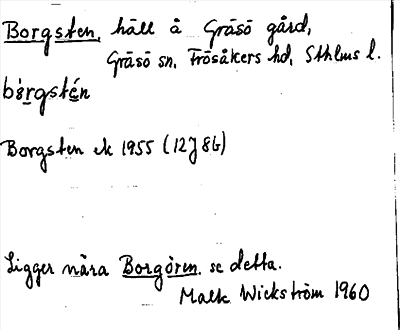 Borgsten, häll å Gräsö gård,
Gräsö sn, Frösåkers hd, Sthlms l.
bórgstén
Borgsten ek 1955 (12J 8b)
Ligger nära Borgören. se detta.
Malte Wickström 1960